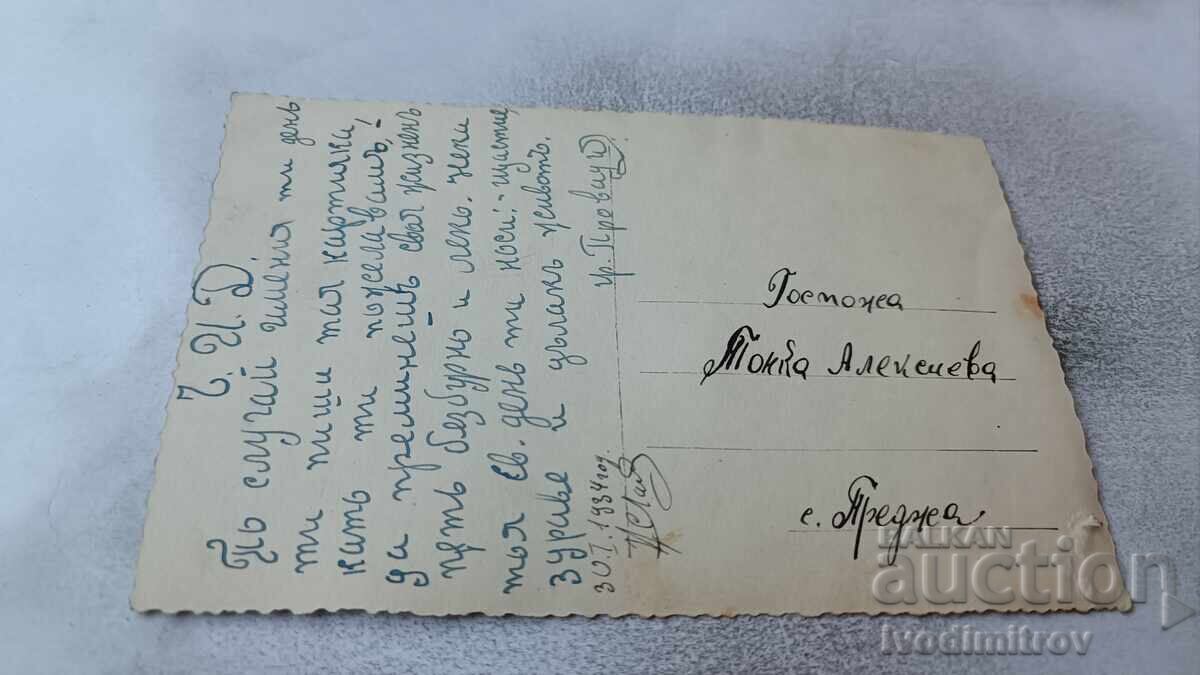 Ч. И. Д.
По случай имени ти день
ти пиши тая картичка,
кать ти пожелавамъ,
да преминешъ своя жизненъ
пѫть безбурно и лекъ. Нека
тоя св. день ти носи:- щастие,
здраве и дълакъ животъ.
30 I. 1934 год. гр. Провадия
Госпожа
Тонка Алексиева
с. Преджа
BALKAN
auction
ivodimitrov